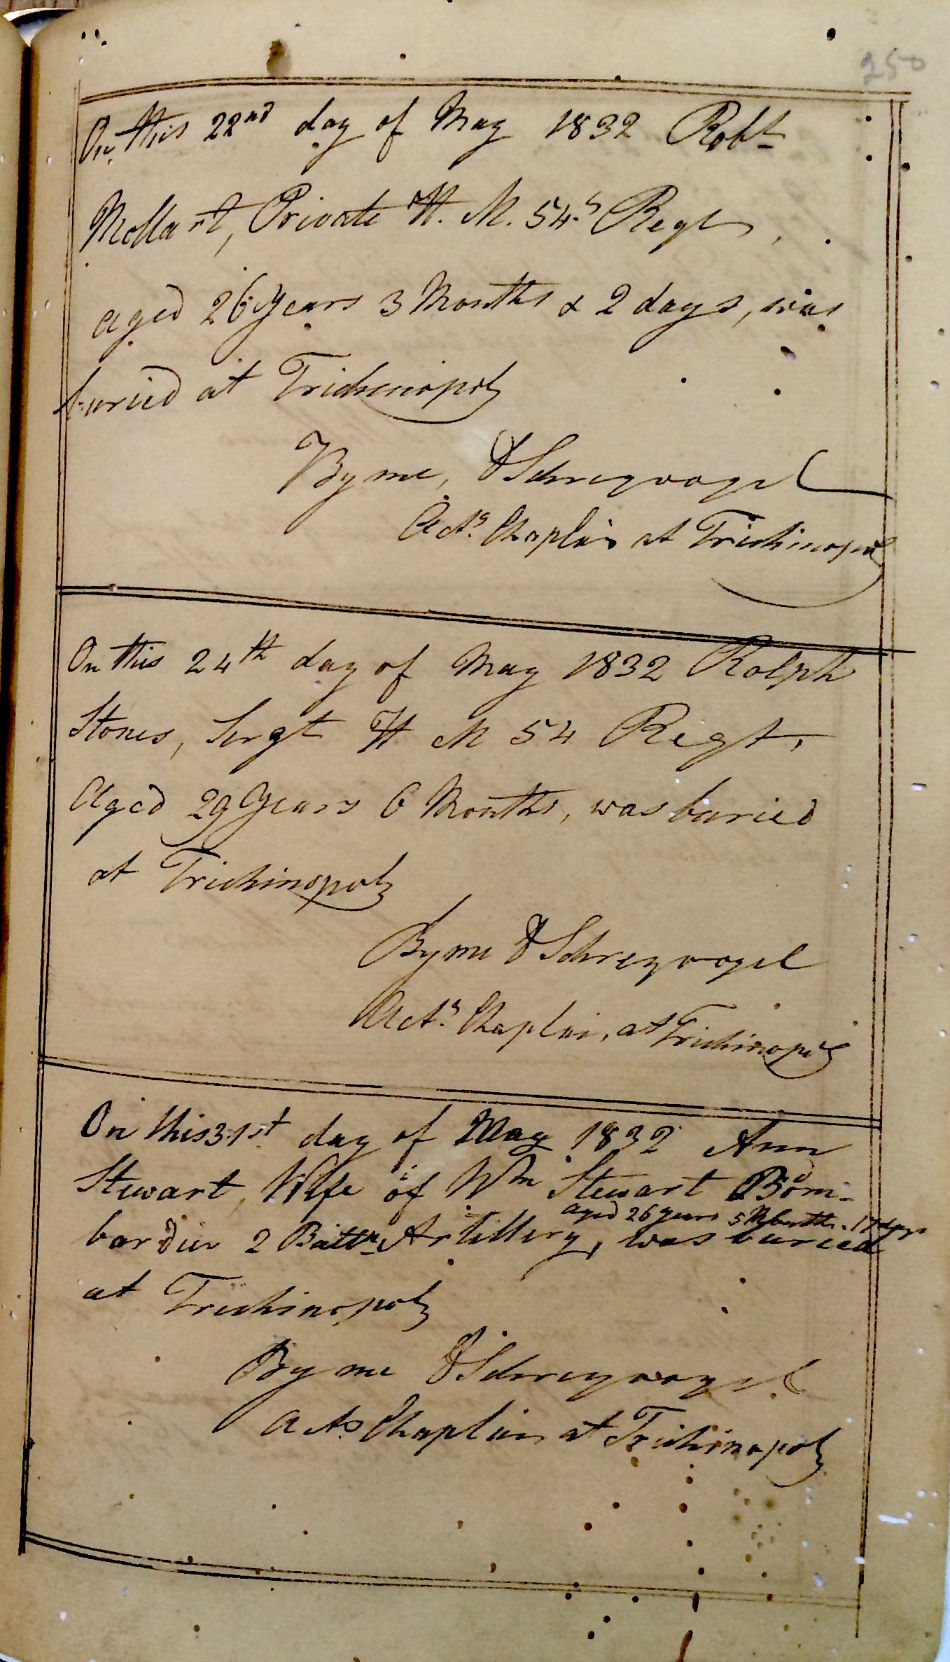 250
On this 22nd day of May 1832 Robt
Mollart, Private H. M. 54.th Regt,
aged 26 Years 3 Months & 2 days, was
buried at Trichinopoly
By me, D Schreyvogel
Actg. Chaplin at Trichinopoly
On this 24th day of May 1832 Rolph
Stones, Sergt H M 54 Regt,
Aged 29 Years 6 Months, was buried
at Trichinopoly
By me D Schreyvogel
Actg. Chaplin, at Trichinopoly
On this 31st day of May 1832 Ann
Stewart, Wife of Wm Stewart Bom-
aged 26 years 5 Month. 17 days
bardier 2 Battn Artillery, was buried
at Trichinopoly
By me D Schreyvogel
Actg Chaplin at Trichinopoly